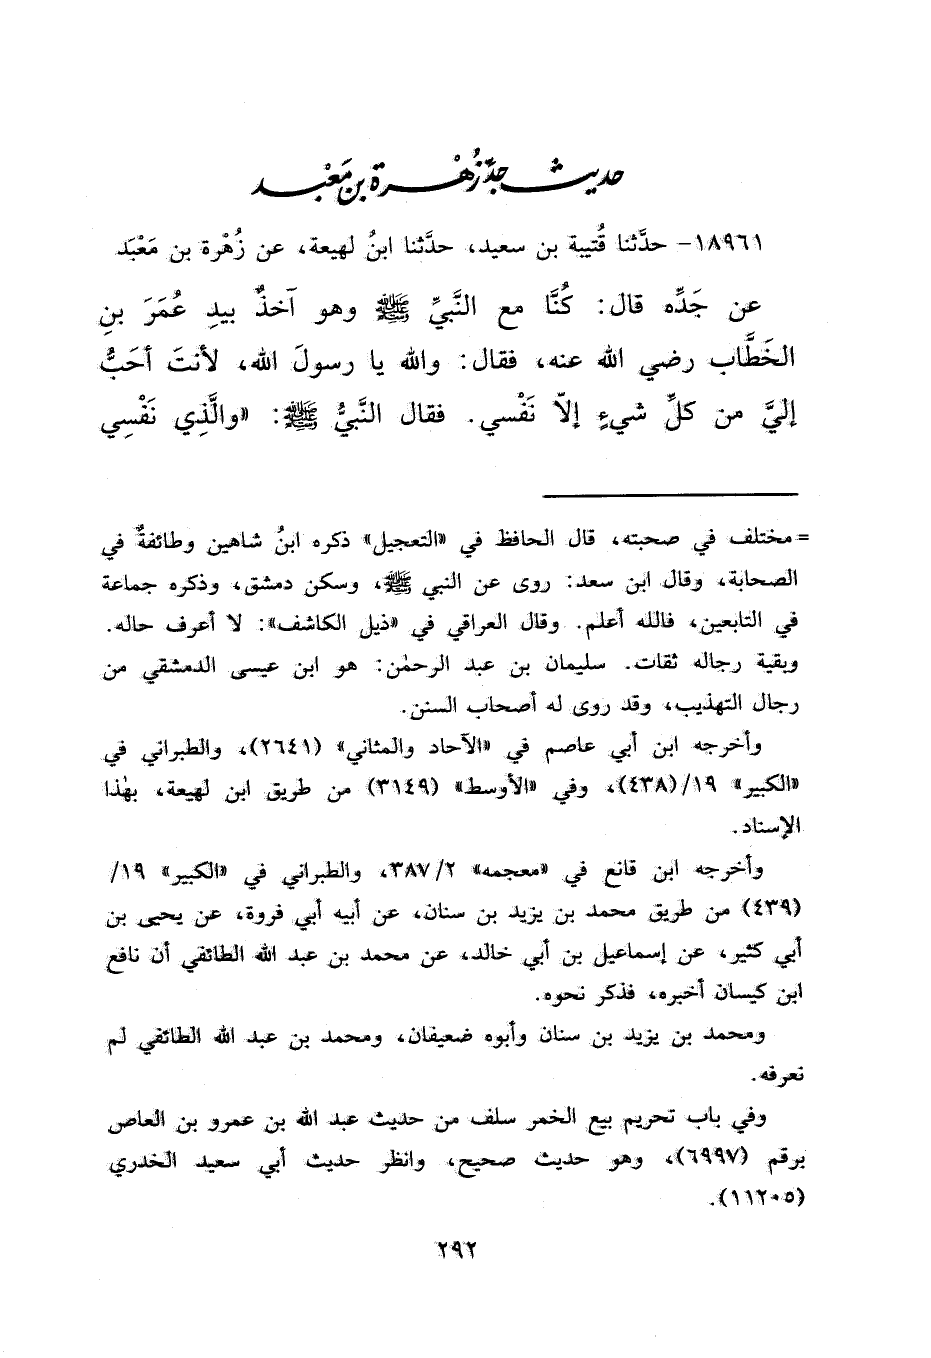 حديث جد زُهْرة بن مَعْبد
١٨٩٦١- حدَّثنا قُتيبة بن سعيد، حدَّثنا ابنُ لهيعة، عن زُهْرة بن مَعْبَد
عن جَدِّه قال: كُنَّا مع النَّبيِّ ﷺ وهو آخذٌ بيدِ عُمَرَ بنِ
الخَطَّاب رضي الله عنه، فقال: والله يا رسولَ الله، لأنتَ أحَبُّ
إليَّ من كلِّ شيءٍ إلاّ نَفْسي. فقال النَّبيُّ ﷺ: «والَّذِي نَفْسِي
= مختلف في صحبته، قال الحافظ في «التعجيل» ذكره ابنُ شاهين وطائفةٌ في
الصحابة، وقال ابن سعد: روى عن النبي ﷺ، وسكن دمشق، وذكره جماعة
في التابعين، فالله أعلم. وقال العراقي في «ذيل الكاشف»: لا أعرف حاله.
وبقية رجاله ثقات. سليمان بن عبد الرحمٰن: هو ابن عيسى الدمشقي من
رجال التهذيب، وقد روى له أصحاب السنن.
وأخرجه ابن أبي عاصم في «الآحاد والمثاني» (٢٦٤١)، والطبراني في
«الكبير» ١٩/(٤٣٨)، وفي «الأوسط» (٣١٤٩) من طريق ابن لهيعة، بهٰذا
الإسناد.
وأخرجه ابن قانع في «معجمه» ٣٨٧/٢، والطبراني في «الكبير» ١٩/
(٤٣٩) من طريق محمد بن يزيد بن سنان، عن أبيه أبي فروة، عن يحيى بن
أبي كثير، عن إسماعيل بن أبي خالد، عن محمد بن عبد الله الطائفي أن نافع
ابن كيسان أخبره، فذكر نحوه.
ومحمد بن يزيد بن سنان وأبوه ضعيفان، ومحمد بن عبد الله الطائفي لم
نعرفه.
وفي باب تحريم بيع الخمر سلف من حديث عبد الله بن عمرو بن العاص
برقم (٦٩٩٧)، وهو حديث صحيح، وانظر حديث أبي سعيد الخدري
(١١٢٠٥).
٢٩٢